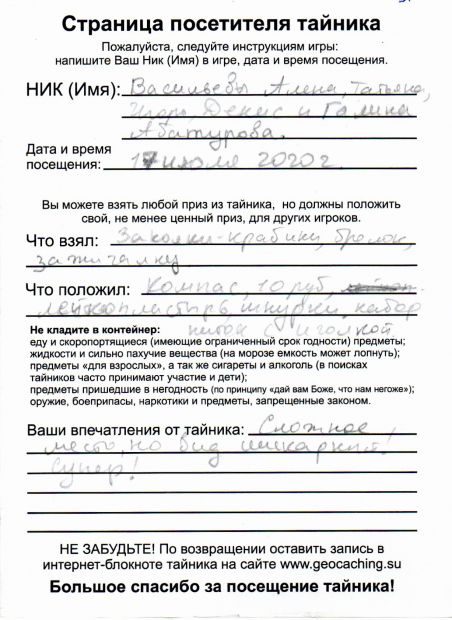 Страница посетителя тайника
Пожалуйста, следуйте инструкциям игры:
напишите Ваш Ник (Имя) в игре, дата и время посещения.
НИК (Имя): Васильевы Алена, Татьяна,
Игорь, Денис и Галина
Абатурова.
Дата и время
посещения: 17 июля 2020г.
Вы можете взять любой приз из тайника, но должны положить
свой, не менее ценный приз, для других игроков.
Что взял: Заколки-крабики, брелок,
зажигалку
Что положил: Компас, 10 руб,
лейкопластырь, шнурки, набор
ниток с иголкой
Не кладите в контейнер:
еду и скоропортящиеся (имеющие ограниченный срок годности) предметы;
жидкости и сильно пахучие вещества (на морозе емкость может лопнуть);
предметы «для взрослых», а так же сигареты и алкоголь (в поисках
тайников часто принимают участие и дети);
предметы пришедшие в негодность (по принципу «дай вам Боже, что нам негоже»);
оружие, боеприпасы, наркотики и предметы, запрещенные законом.
Ваши впечатления от тайника: Сложное
место, но вид шикарный!
Супер!
НЕ ЗАБУДЬТЕ! По возвращении оставить запись в
интернет-блокноте тайника на сайте www.geocaching.su
Большое спасибо за посещение тайника!